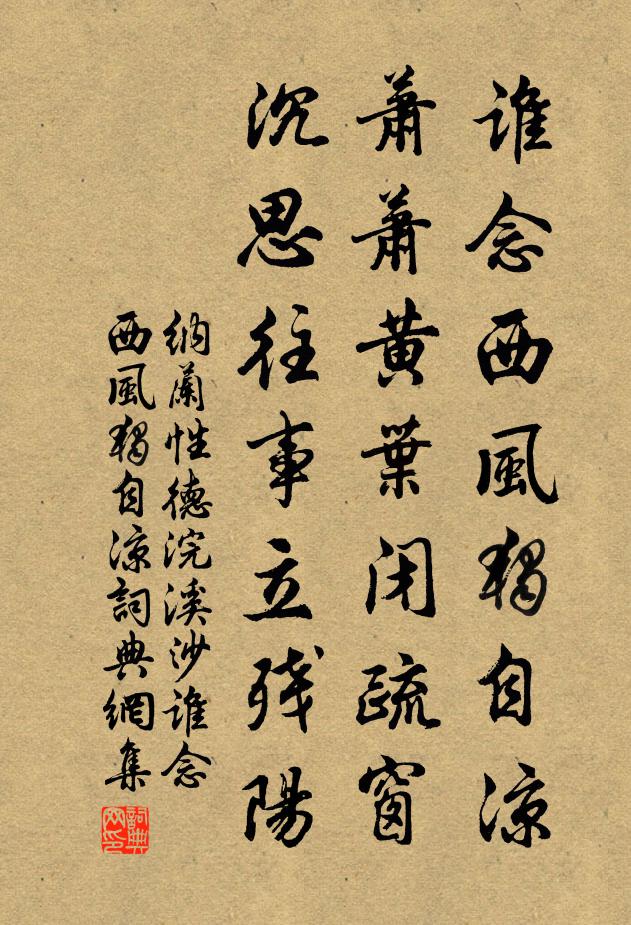 誰念西風獨自涼
蕭蕭黃葉閉疏窗
沉思往事立殘陽
納蘭性德浣溪沙誰念
西風獨自涼詞典網集
詞典
网印